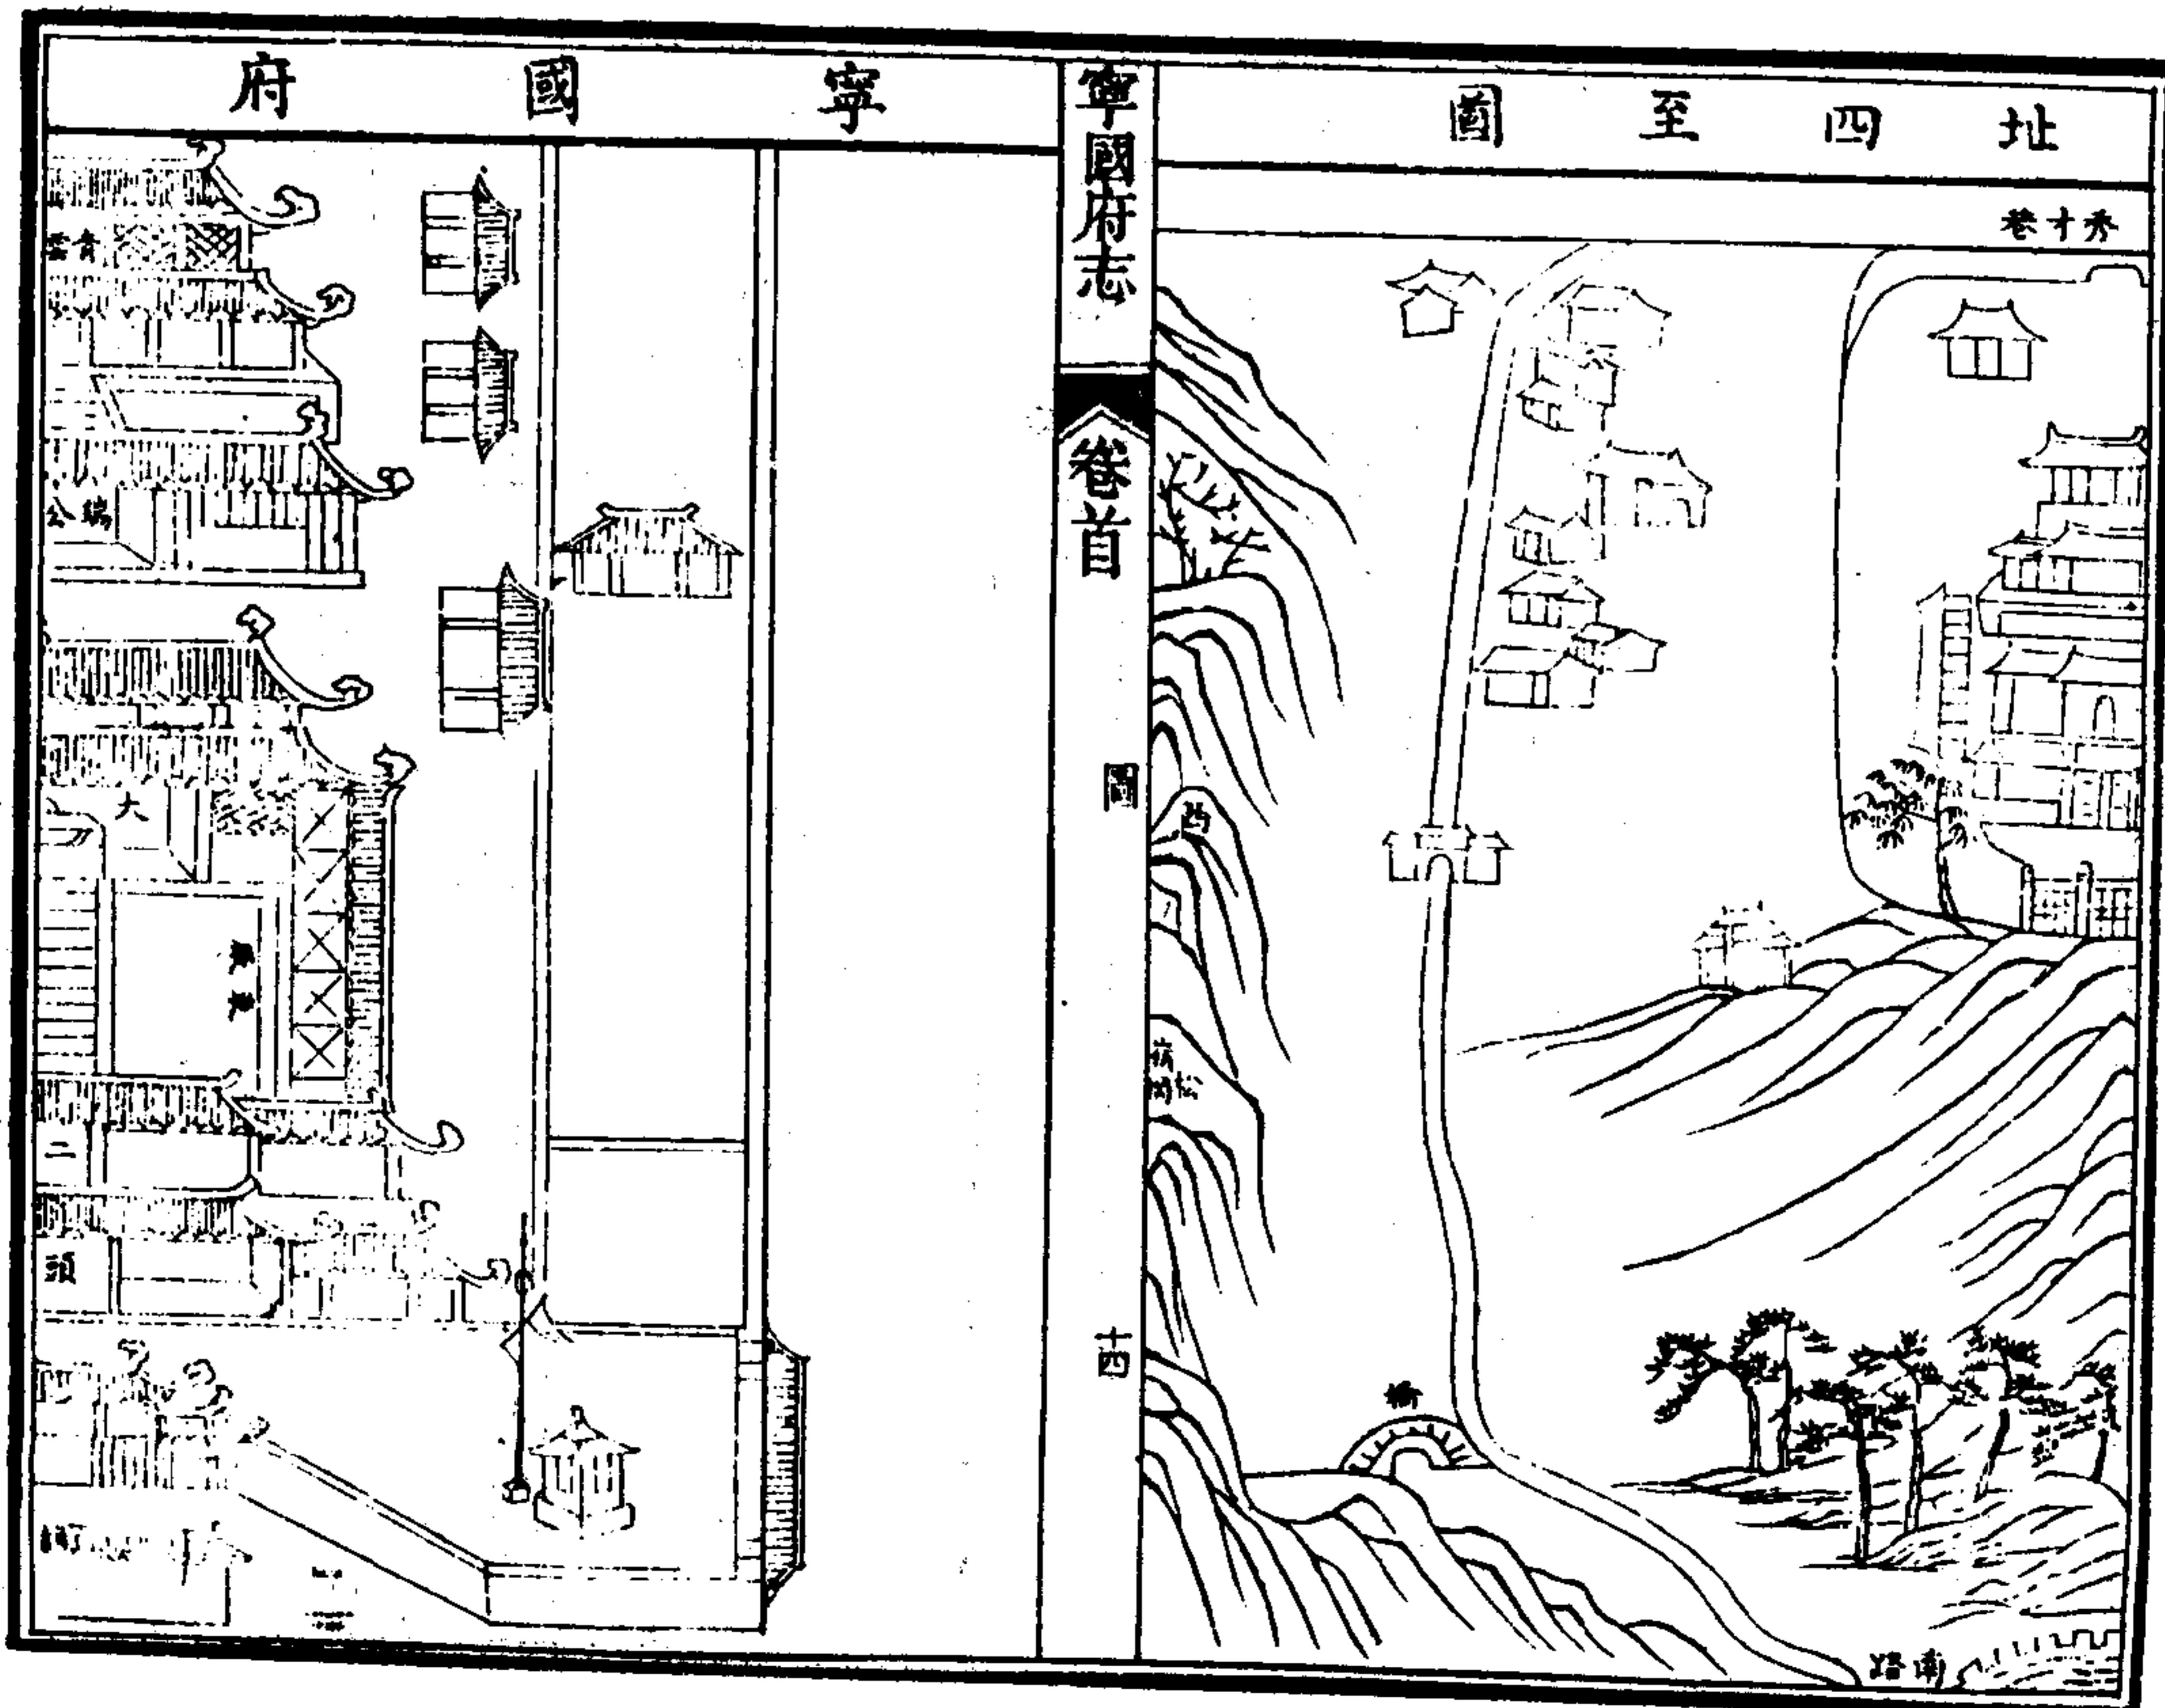 址四至圖
秀才巷
西
橋
南路
寧國府志
卷首
圖
十四
寧國府
青雲
瑞公
大
二
頭